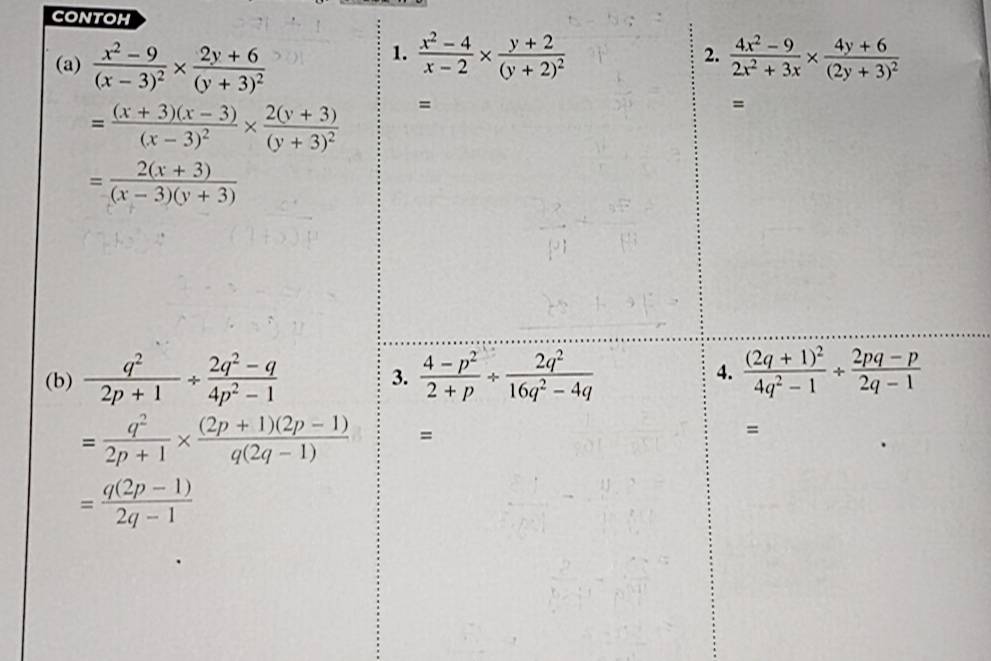 CONTOH
(a) \frac{x^2 - 9}{(x - 3)^2} × \frac{2y + 6}{(y + 3)^2}
= \frac{(x + 3)(x - 3)}{(x - 3)^2} × \frac{2(y + 3)}{(y + 3)^2}
= \frac{2(x + 3)}{(x - 3)(y + 3)}
1. \frac{x^2 - 4}{x - 2} × \frac{y + 2}{(y + 2)^2}
=
2. \frac{4x^2 - 9}{2x^2 + 3x} × \frac{4y + 6}{(2y + 3)^2}
=
(b) \frac{q^2}{2p + 1} ÷ \frac{2q^2 - q}{4p^2 - 1}
= \frac{q^2}{2p + 1} × \frac{(2p + 1)(2p - 1)}{q(2q - 1)}
= \frac{q(2p - 1)}{2q - 1}
3. \frac{4 - p^2}{2 + p} ÷ \frac{2q^2}{16q^2 - 4q}
=
4. \frac{(2q + 1)^2}{4q^2 - 1} ÷ \frac{2pq - p}{2q - 1}
=